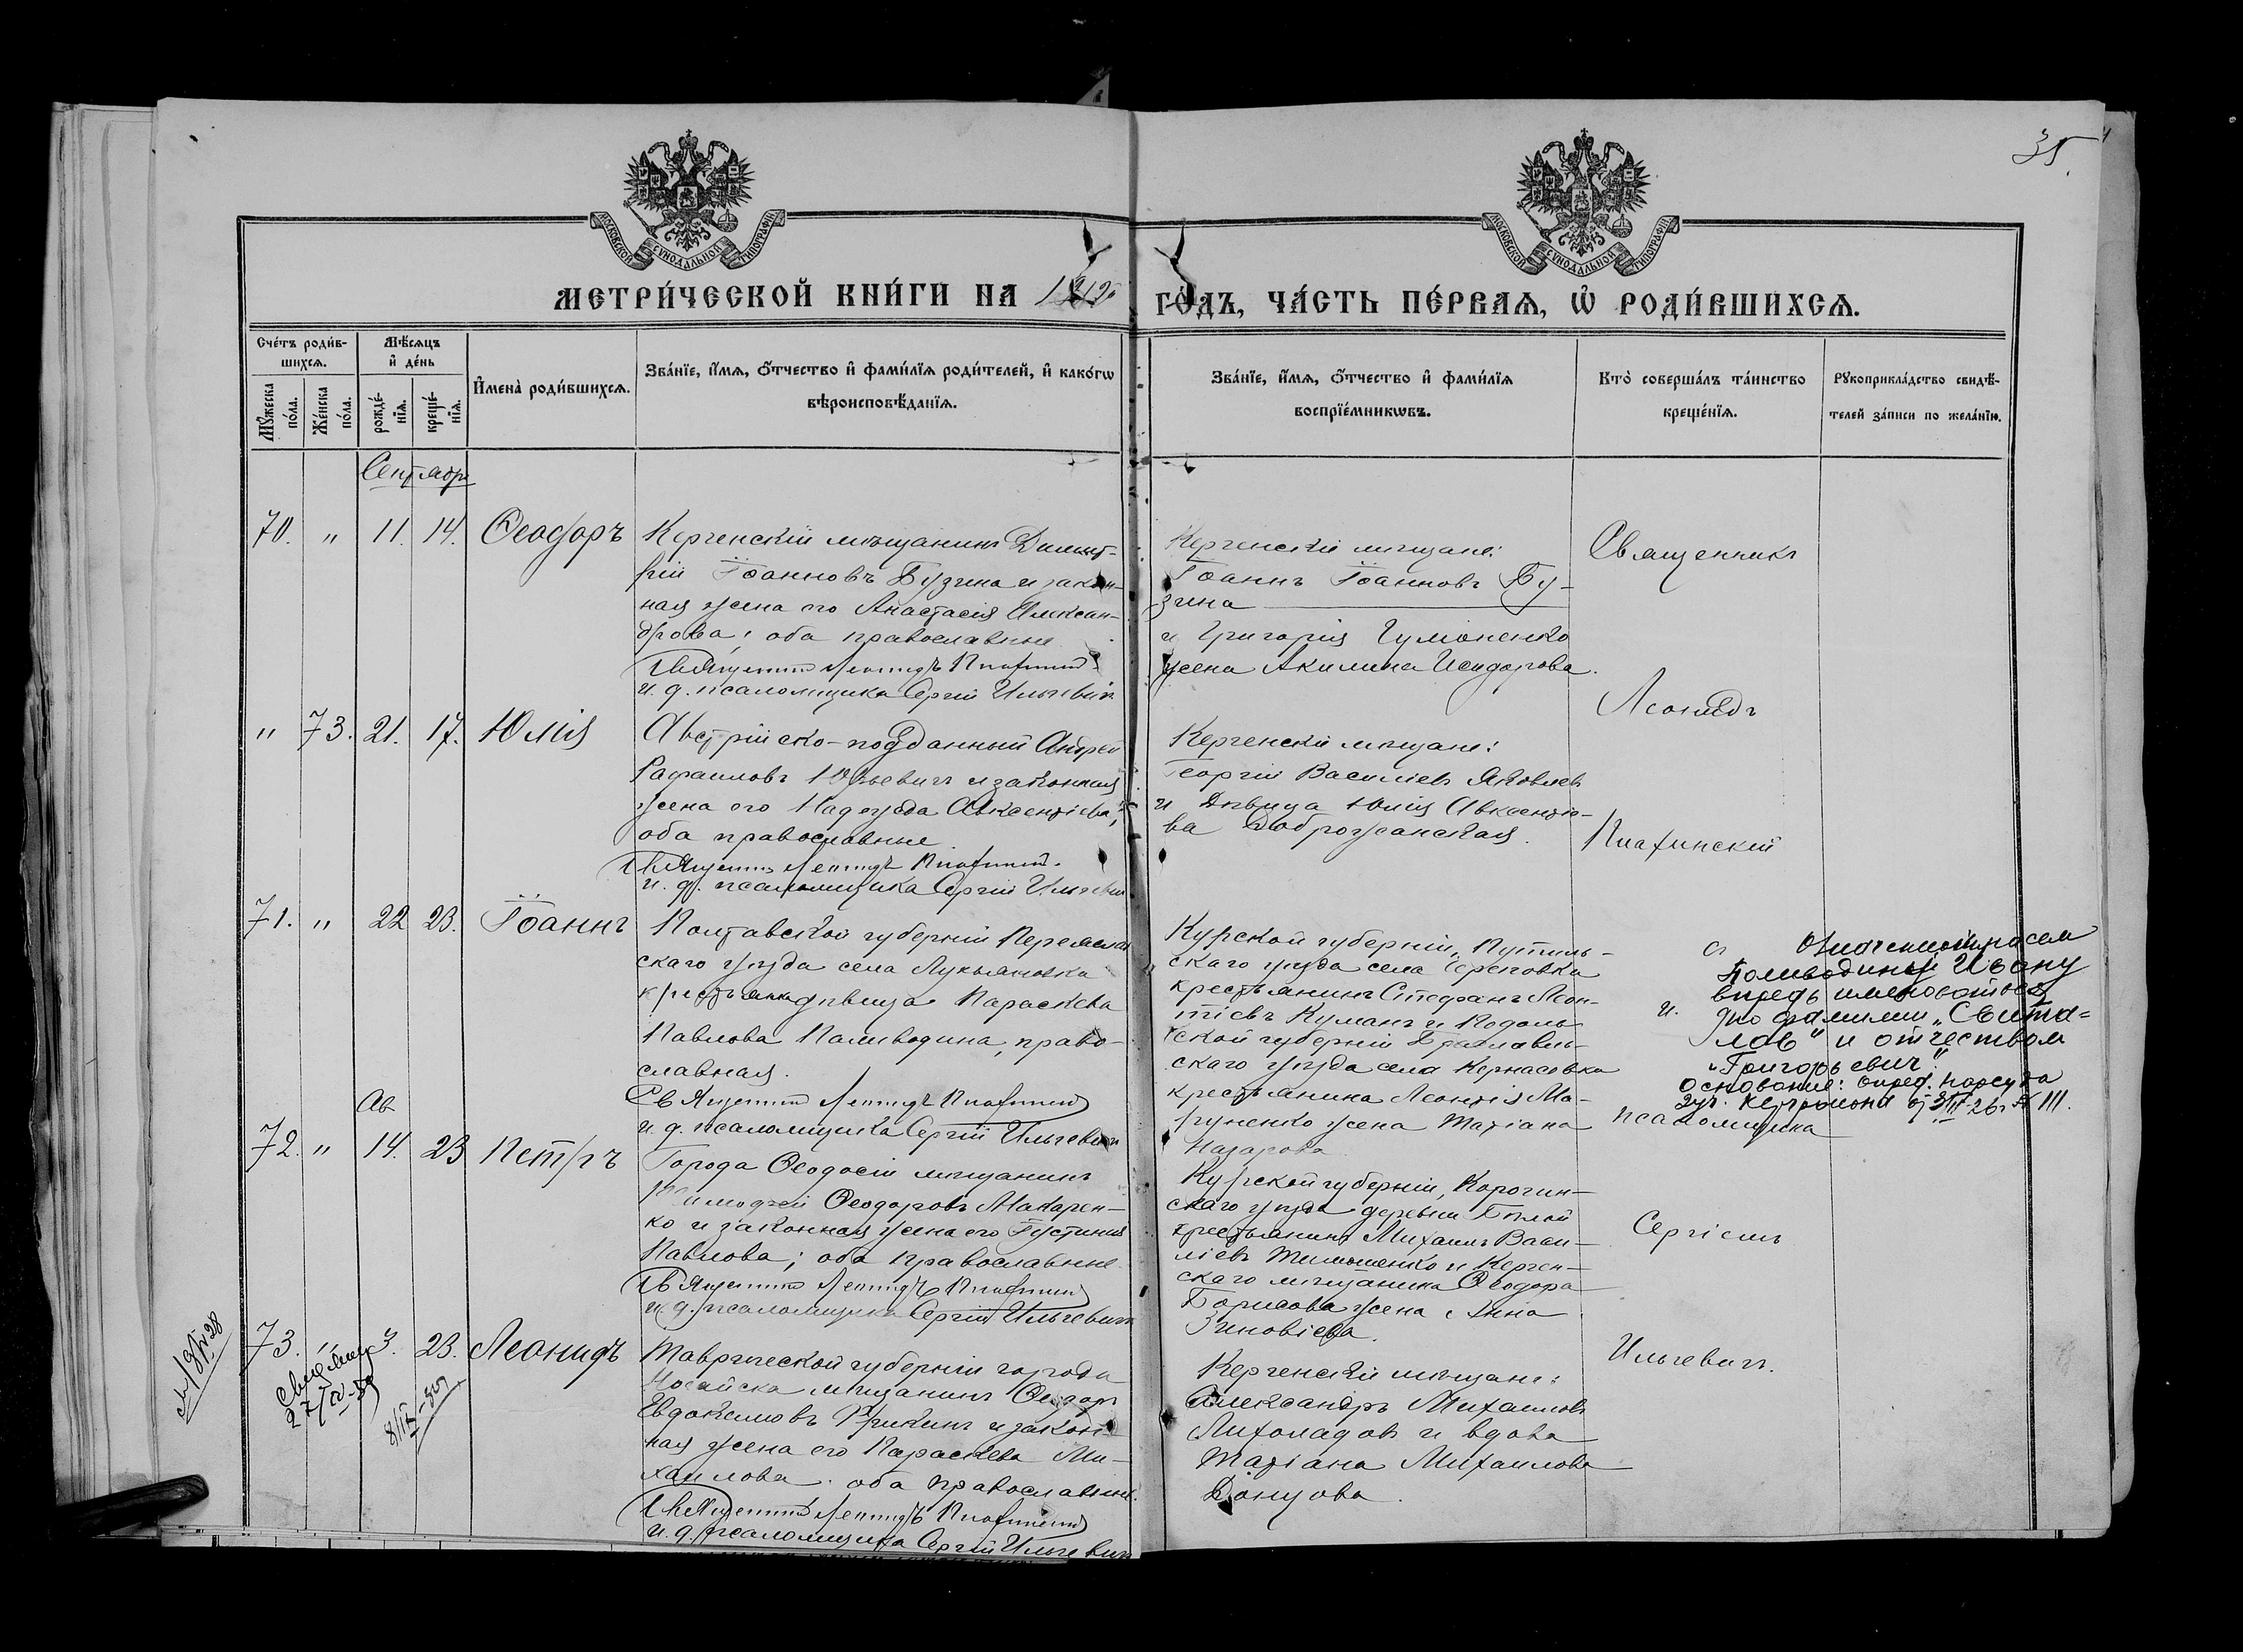 35
МОСКОВСКОЙ СѴНОДАЛЬНОЙ ТИПОГРАФІИ
МОСКОВСКОЙ СѴНОДАЛЬНОЙ ТИПОГРАФІИ
МЕТРИ́ЧЕСКОЙ КНИ́ГИ НА 1912 ГО́ДЪ, ЧА́СТЬ ПЕ́РВАѦ, Ѡ҆ РОДИ́ВШИХСѦ.
Сче́тъ роди́в-
шихсѧ.
Мꙋ́жеска по́ла.
Же́нска по́ла.
Мѣ́сѧцъ
и҆ де́нь
рожде́-
нїѧ.
креще́-
нїѧ.
И҆мена̀ роди́вшихсѧ.
Зва́нїе, и҆́мѧ, ѻ҆́тчество и҆ фами́лїѧ роди́телей, и҆ како́гѡ
вѣроисповѣ́данїѧ.
Зва́нїе, и҆́мѧ, ѻ҆́тчество и҆ фами́лїѧ
воспрїе́мникѡвъ.
Кто̀ соверша́лъ та́инство
креще́нїѧ.
Рꙋкоприкла́дство свидѣ́-
телей за́писи по жела́нїю.
Сентябрь
70. " 11. 14. Ѳеодоръ
Керченскій мѣщанинъ Димит-
рій Іоанновъ Бузина и закон-
ная жена его Анастасія Алексан-
дрова; оба православные
Священникъ Леонидъ
и. д. псаломщика Сергій Ильчевичъ
Керченскіе мѣщане:
Іоаннъ Іоанновъ Бу-
зина
и Григорія Гумоненко
жена Акилина Исидорова.
Священникъ
Леонидъ
" 73. 21. 17. Юлія
Австрійско-подданный Андрей
Рафаиловъ Юрьевичъ и законная
жена его Надежда Авксентіева;
оба православные
Священникъ Леонидъ
и. д. псаломщика Сергій Ильчевичъ
Керченскіе мѣщане:
Георгій Василіевъ Яковлев
и дѣвица Юлія Авксентіе-
ва Доброжанская.
71. " 22 23. Іоаннъ
Полтавской губерніи Переяслав
скаго уѣзда села Лукьяновка
крестьянка дѣвица Параскева
Павлова Паливодина, право-
славная.
Священникъ Леонидъ
и. д. псаломщика Сергій Ильчевичъ
Курской губерніи, Путивль-
скаго уѣзда села
крестьянинъ Стефанъ Леон-
тіевъ Куманъ и Подоль-
ской губерніи Брацлавль-
скаго уѣзда села Кернасовка
крестьянина Леонтія Ма-
руненко жена Татіана
Назарова
Поливодину Ивану
впредь именоваться
и. по фамилии „Свита-
лов" и отчеством
„Григорьевич".
Основание: опред. нарсуда
псаломщика
Ав.
72. " 14. 23 Петръ
Города Ѳеодосіи мѣщанинъ
Тимоѳей Ѳеодоровъ Макарен-
ко и законная жена его Іустина
Павлова; оба православные
Священникъ Леонидъ
и. д. псаломщика Сергій Ильчевичъ
Курской губерніи, Корочан-
скаго уѣзда деревни Бѣлой
крестьянинъ Михаилъ Васи-
ліевъ Тимошенко и Керчен-
скаго мѣщанина Ѳеодора
Борисова жена Анна
Зиновіева.
Сергіемъ
73. " 3. 23. Леонидъ
Таврической губерніи города
Ногайска мѣщанинъ Ѳеодоръ
Евдокимовъ и закон-
ная жена его Параскева Ми-
хаилова. оба православные.
Священникъ Леонидъ
и. д. псаломщика Сергій Ильчевичъ
Керченскіе мѣщане:
Александръ Михаиловъ
Лихоладовъ и вдова
Татіана Михаилова
Донцова.
Ильчевичъ.